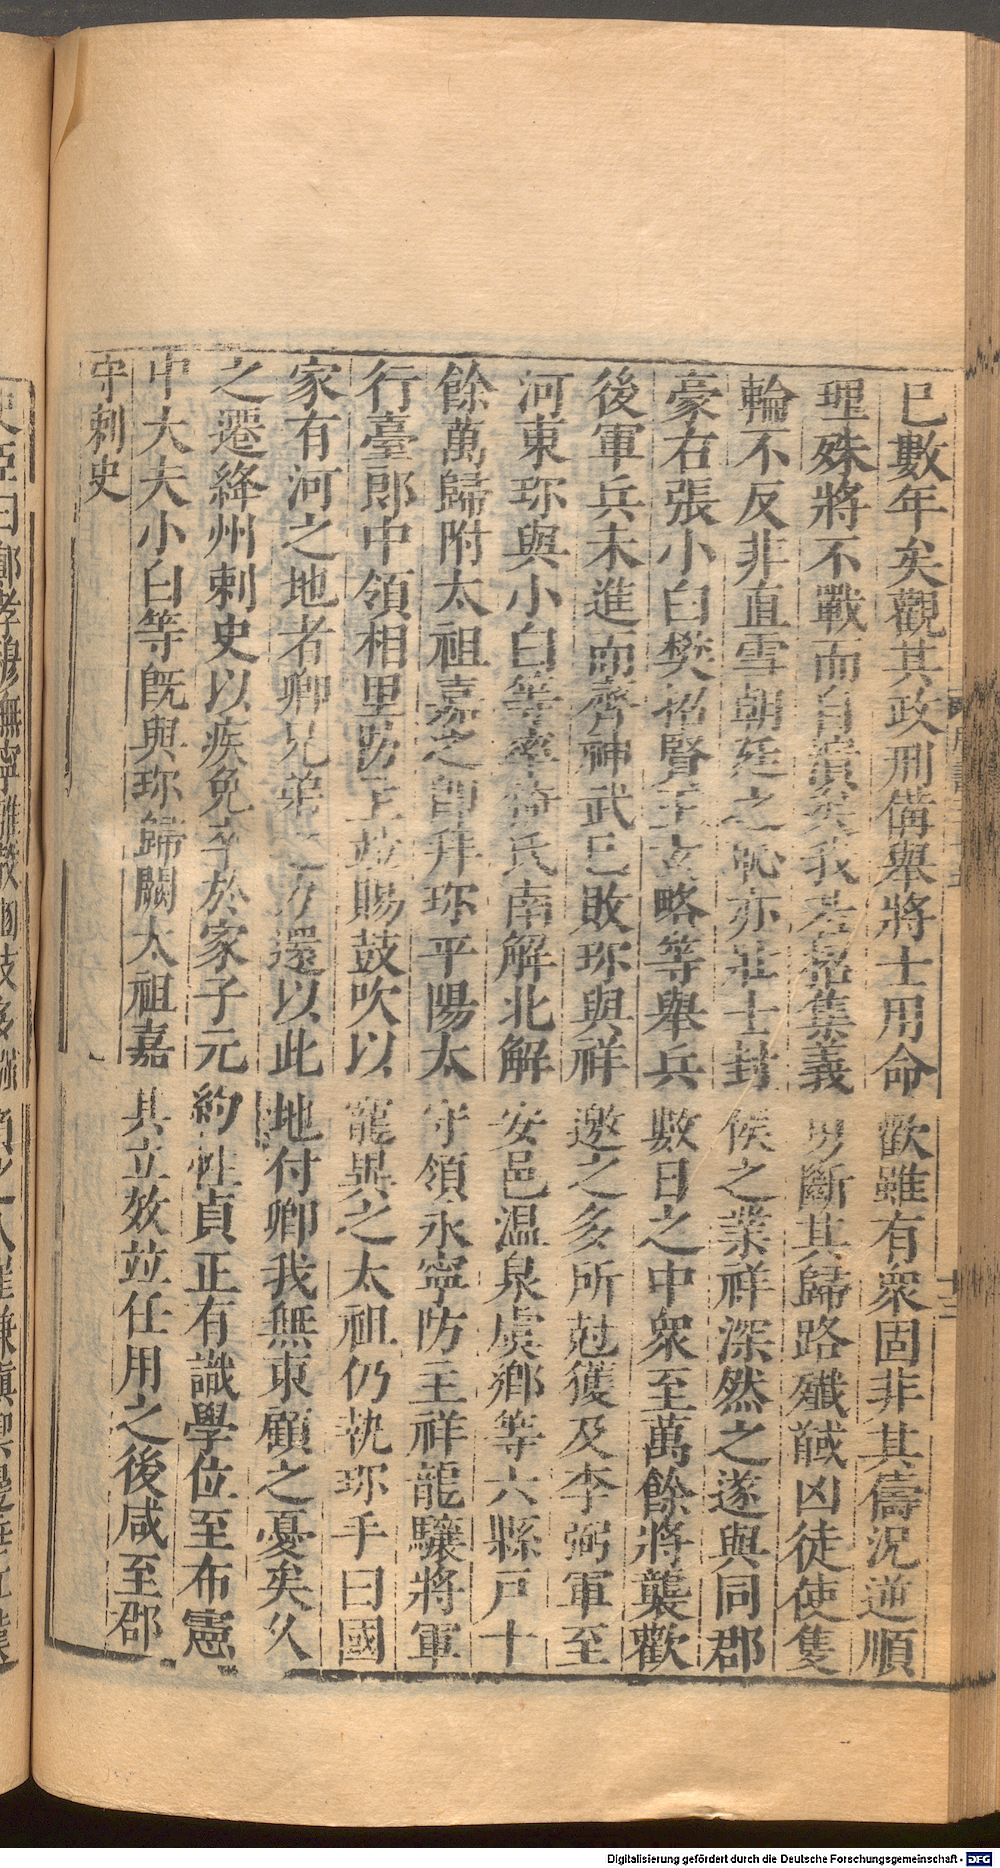 已數年矣觀其政刑備舉將士用命歡雖有衆固非其儔況逆順
理殊將不戰而自潰矣我若招集義勇斷其歸路殲馘凶徒使隻
輪不反非直雪朝廷之恥亦壯士封侯之業祥深然之遂與同郡
豪右張小白樊昭賢王玄略等舉兵數日之中衆至萬餘將襲歡
後軍兵未進而齊神武已敗珎與祥邀之多所尅獲及李弼軍至
河東珎與小白等率猗氏南解北解安邑温泉虞鄉等六縣戸十
餘萬歸附太祖嘉之即拜珎平陽太守領永寧防主祥龍驤將軍
行臺郎中領相里防主竝賜鼓吹以寵異之太祖仍執珎手曰國
家有河之地者卿兄弟之力還以此地付卿我無東顧之憂矣久
之遷絳州刺史以疾免卒於家子元約性貞正有識學位至布憲
中大夫小白等既與珎歸闕太祖嘉其立效竝任用之後咸至郡
守刺史
Digitalisierung gefördert durch die Deutsche Forschungsgemeinschaft - DFG